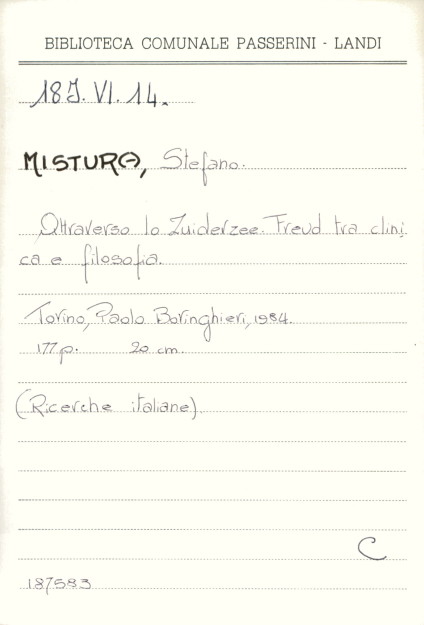 BIBLIOTECA COMUNALE PASSERINI - LANDI
18J. VI. 14.
MISTURA, Stefano.
Attraverso lo Zuiderzee. Freud tra clini
ca e filosofia.
Torino, Paolo Boringhieri, 1984.
177 p. 20 cm.
(Ricerche italiane)
C
187583